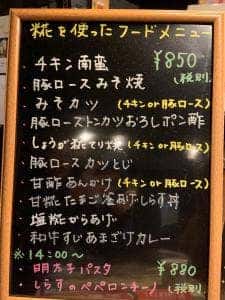 糀を使ったフードメニュー
・チキン南蛮 ¥850
(税別)
・豚ロースみそ焼
・みそカツ (チキン or 豚ロース)
・豚ロースとんカツおろしポン酢
・しょうが糀てり焼 (チキン or 豚ロース)
・豚ロースカツとじ
・甘酢あんかけ (チキン or 豚ロース)
・甘糀たまご釜あげしらす丼
・塩糀からあげ
・和牛すじあまざけカレー
※14:00〜
・明太子パスタ ¥880
・しらすのペペロンチーノ (税別)